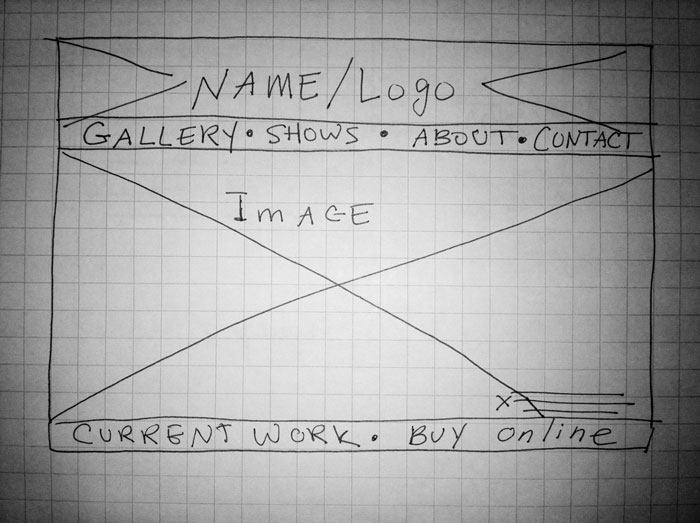 NAME/Logo
GALLERY • SHOWS • ABOUT • CONTACT
ImAGE
x
CURRENT WORK. BUY online